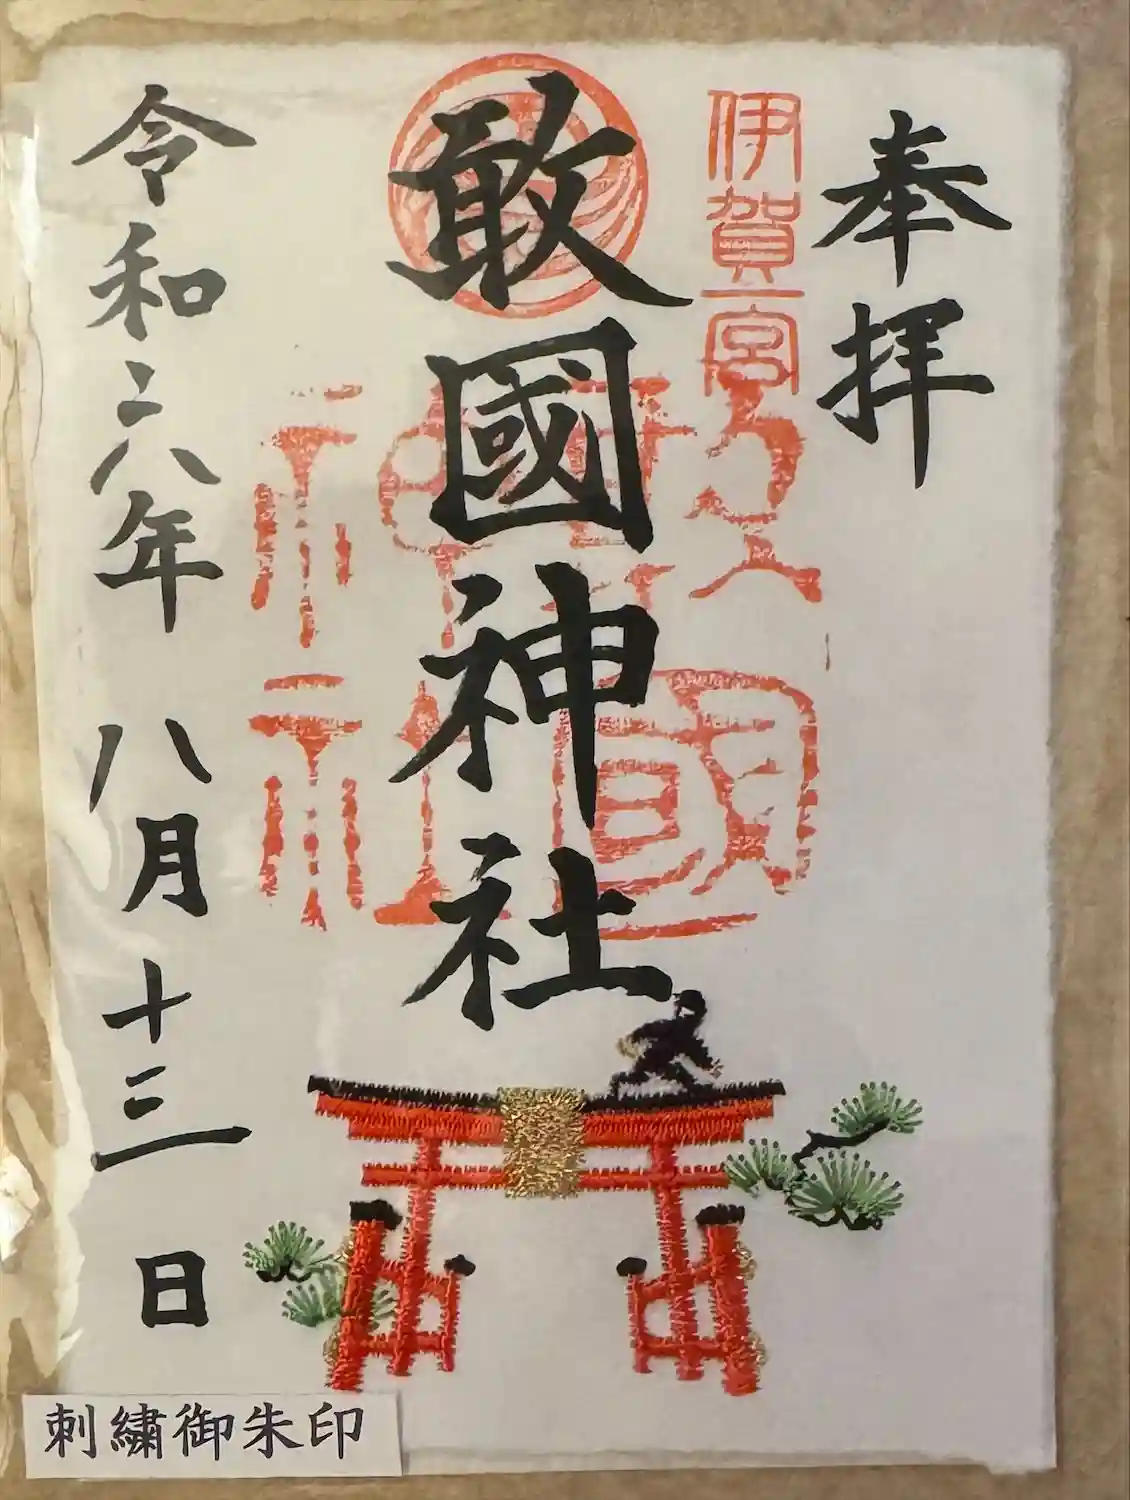 奉拝
伊賀一宮
敢國神社
敢國神社
令和六年 八月十三日
刺繍御朱印